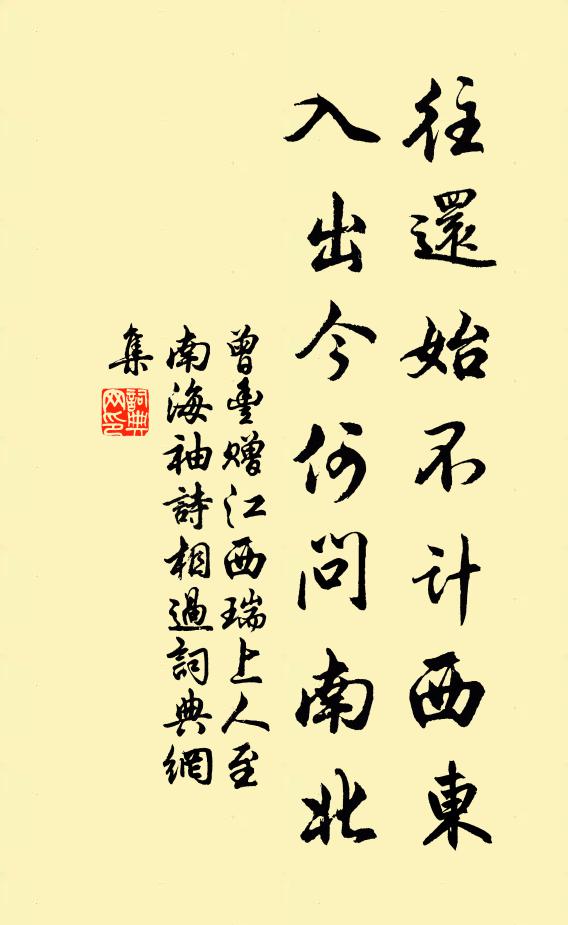 往還始不计西東
入出今何问南北
曾豊赠江西瑞上人至
南海袖詩相過詞典網
集
詞典
网印